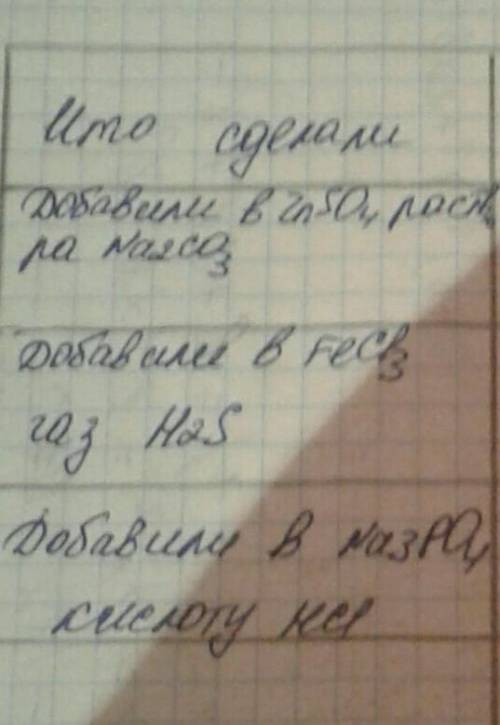 Что сделали
Добавили в ZnSO₄ раство
ра Na2CO3
Добавили в FeCl3
газ H2S
Добавили в Na3PO4
кислоту HCl